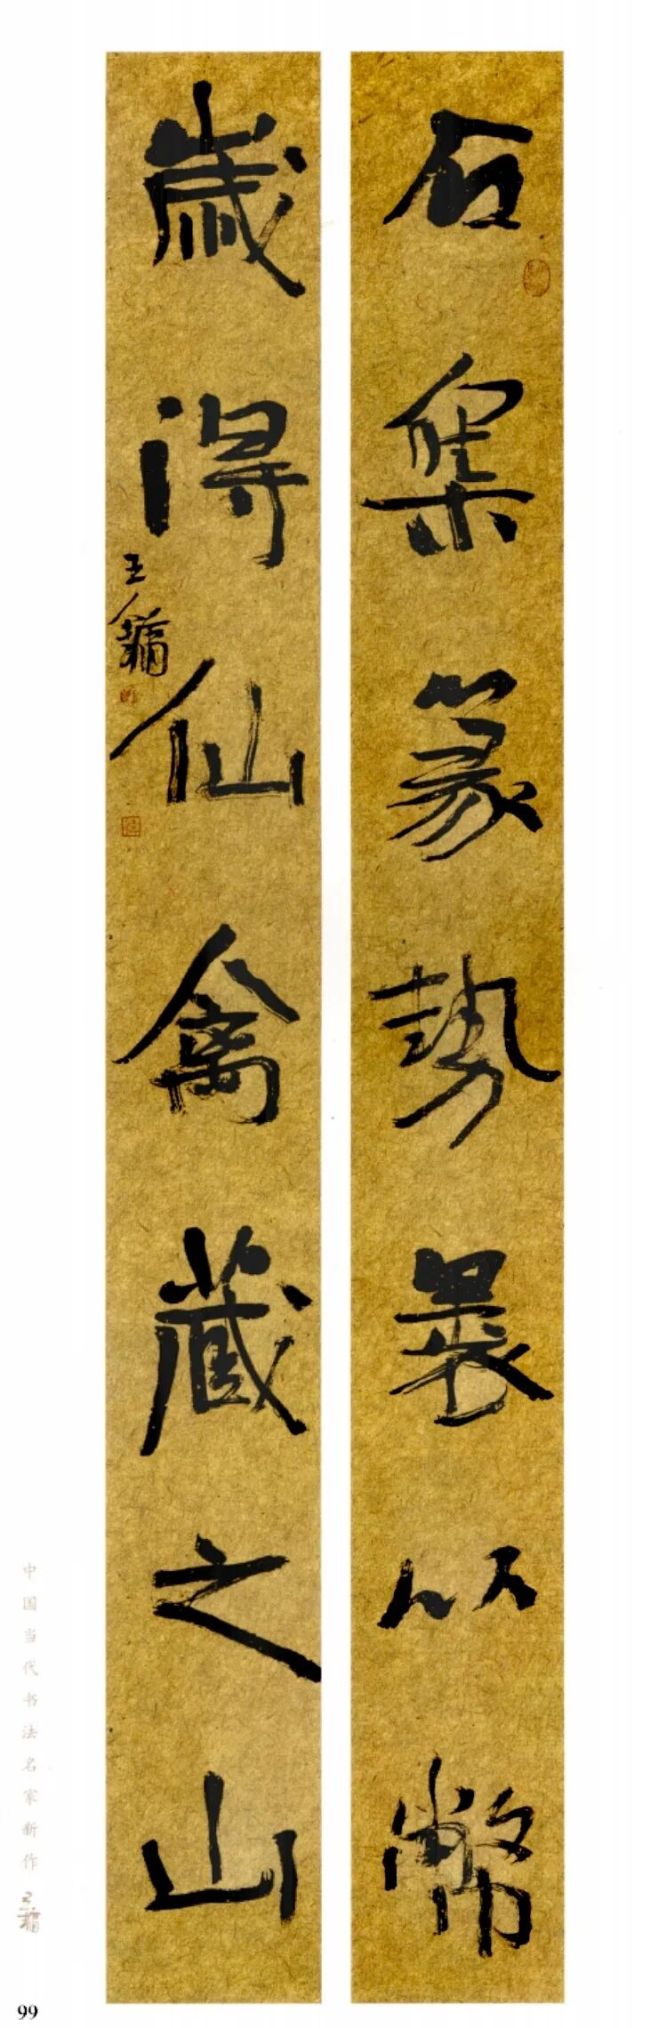 石集篆势裹以幣
歲得仙禽藏之山
王镛
中国当代书法名家新作
王镛
99